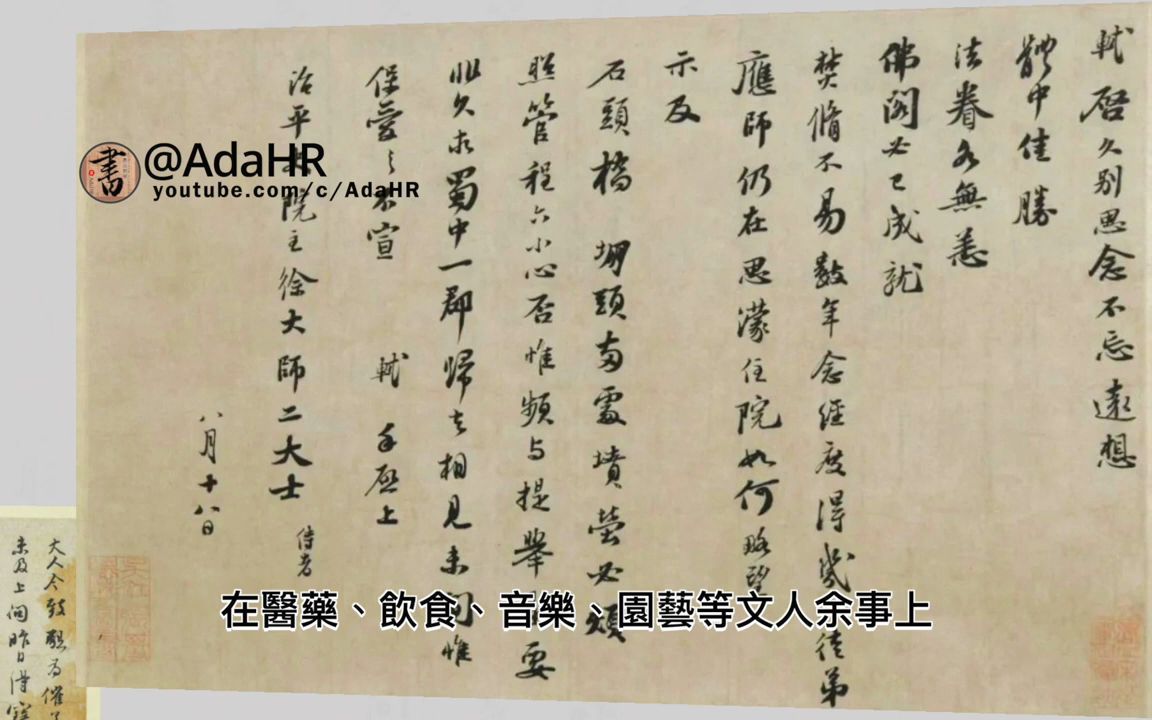 軾啓久別思念不忘遠想
體中佳勝
法眷各無恙
佛閣必已成就
焚脩不易數年念經度得幾徒弟
應師仍在思濛住院如何略望
示及
石頭橋堋頭兩處墳塋必煩
照管程六小心否惟頻與提舉要
非久求蜀中一郡歸去相見未間惟
保愛之不宣 軾手啓上
治平院主徐大師二大士 侍者
八月十八日
大人令致懇為催
未及上問昨日得寶
書
@AdaHR
youtube.com/c/AdaHR
在醫藥、飲食、音樂、園藝等文人余事上